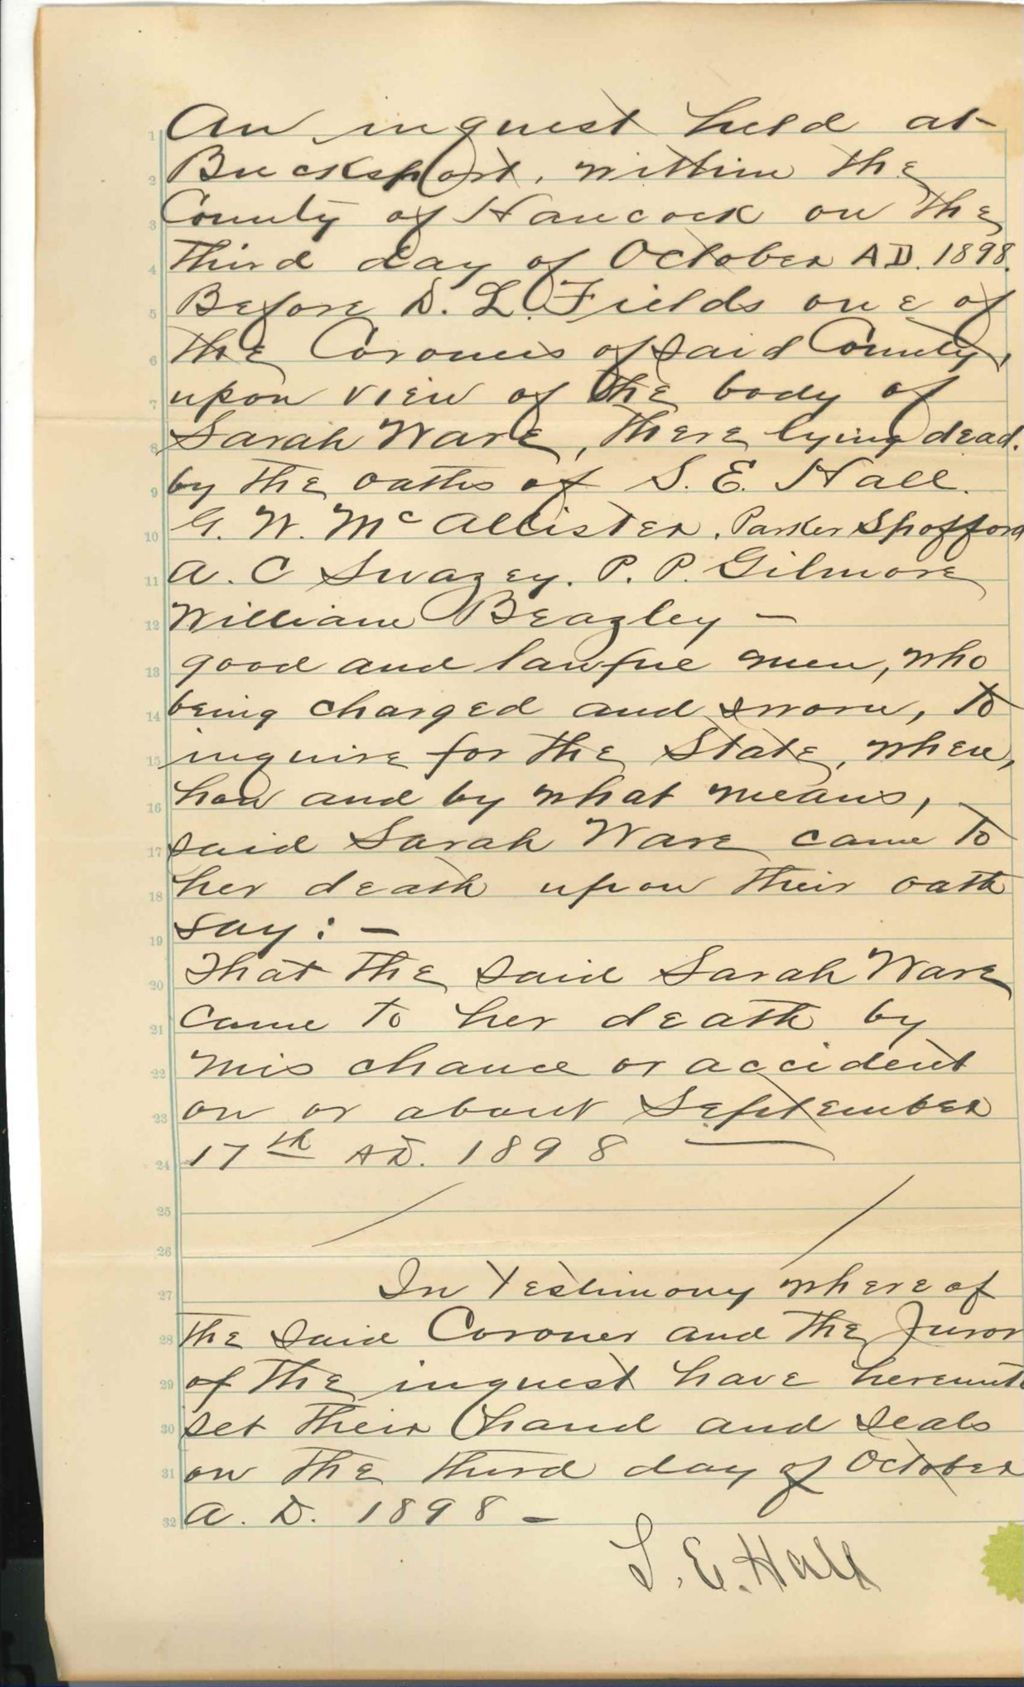 An inquest held at
Bucksport, within the
County of Hancock on the
third day of October A D. 1898.
Before D. L. Fields one of
the Coroners of said County,
upon view of the body of
Sarah Ware, there lying dead.
by the oaths of S. E. Hall.
G. W. McAllister, Parker Spofford
A. C Swazey. P. P. Gilmore
William Beazley —
good and lawful men, who
being charged and sworn, to
inquire for the State, when,
how and by what means,
said Sarah Ware came to
her death upon their oath
say: —
That the said Sarah Ware
came to her death by
mis chance or accident
on or about September
17th AD. 1898 —
In Testimony whereof
the said Coroner and the Juror
of the inquest have hereunto
set their hand and seals
on the third day of October
A. D. 1898 —
S. E. Hall
1
2
3
4
5
6
7
8
9
10
11
12
13
14
15
16
17
18
19
20
21
22
23
24
25
26
27
28
29
30
31
32